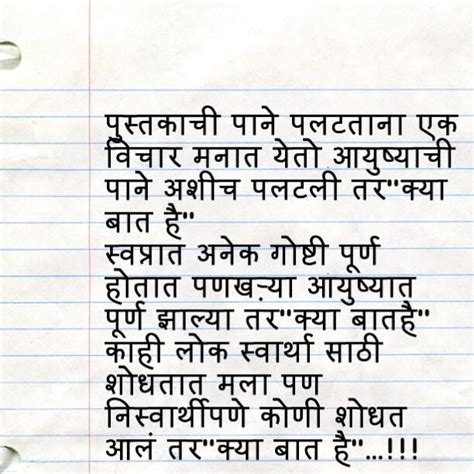 पुस्तकाची पाने पलटताना एक
विचार मनात येतो आयुष्याची
पाने अशीच पलटली तर"क्या
बात है"
स्वप्नात अनेक गोष्टी पूर्ण
होतात पणखऱ्या आयुष्यात
पूर्ण झाल्या तर"क्या बातहै"
काही लोक स्वार्था साठी
शोधतात मला पण
निस्वार्थीपणे कोणी शोधत
आलं तर"क्या बात है"...!!!